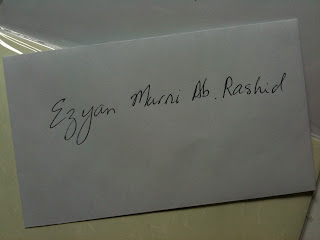 Ezyan Murni Ab. Rashid